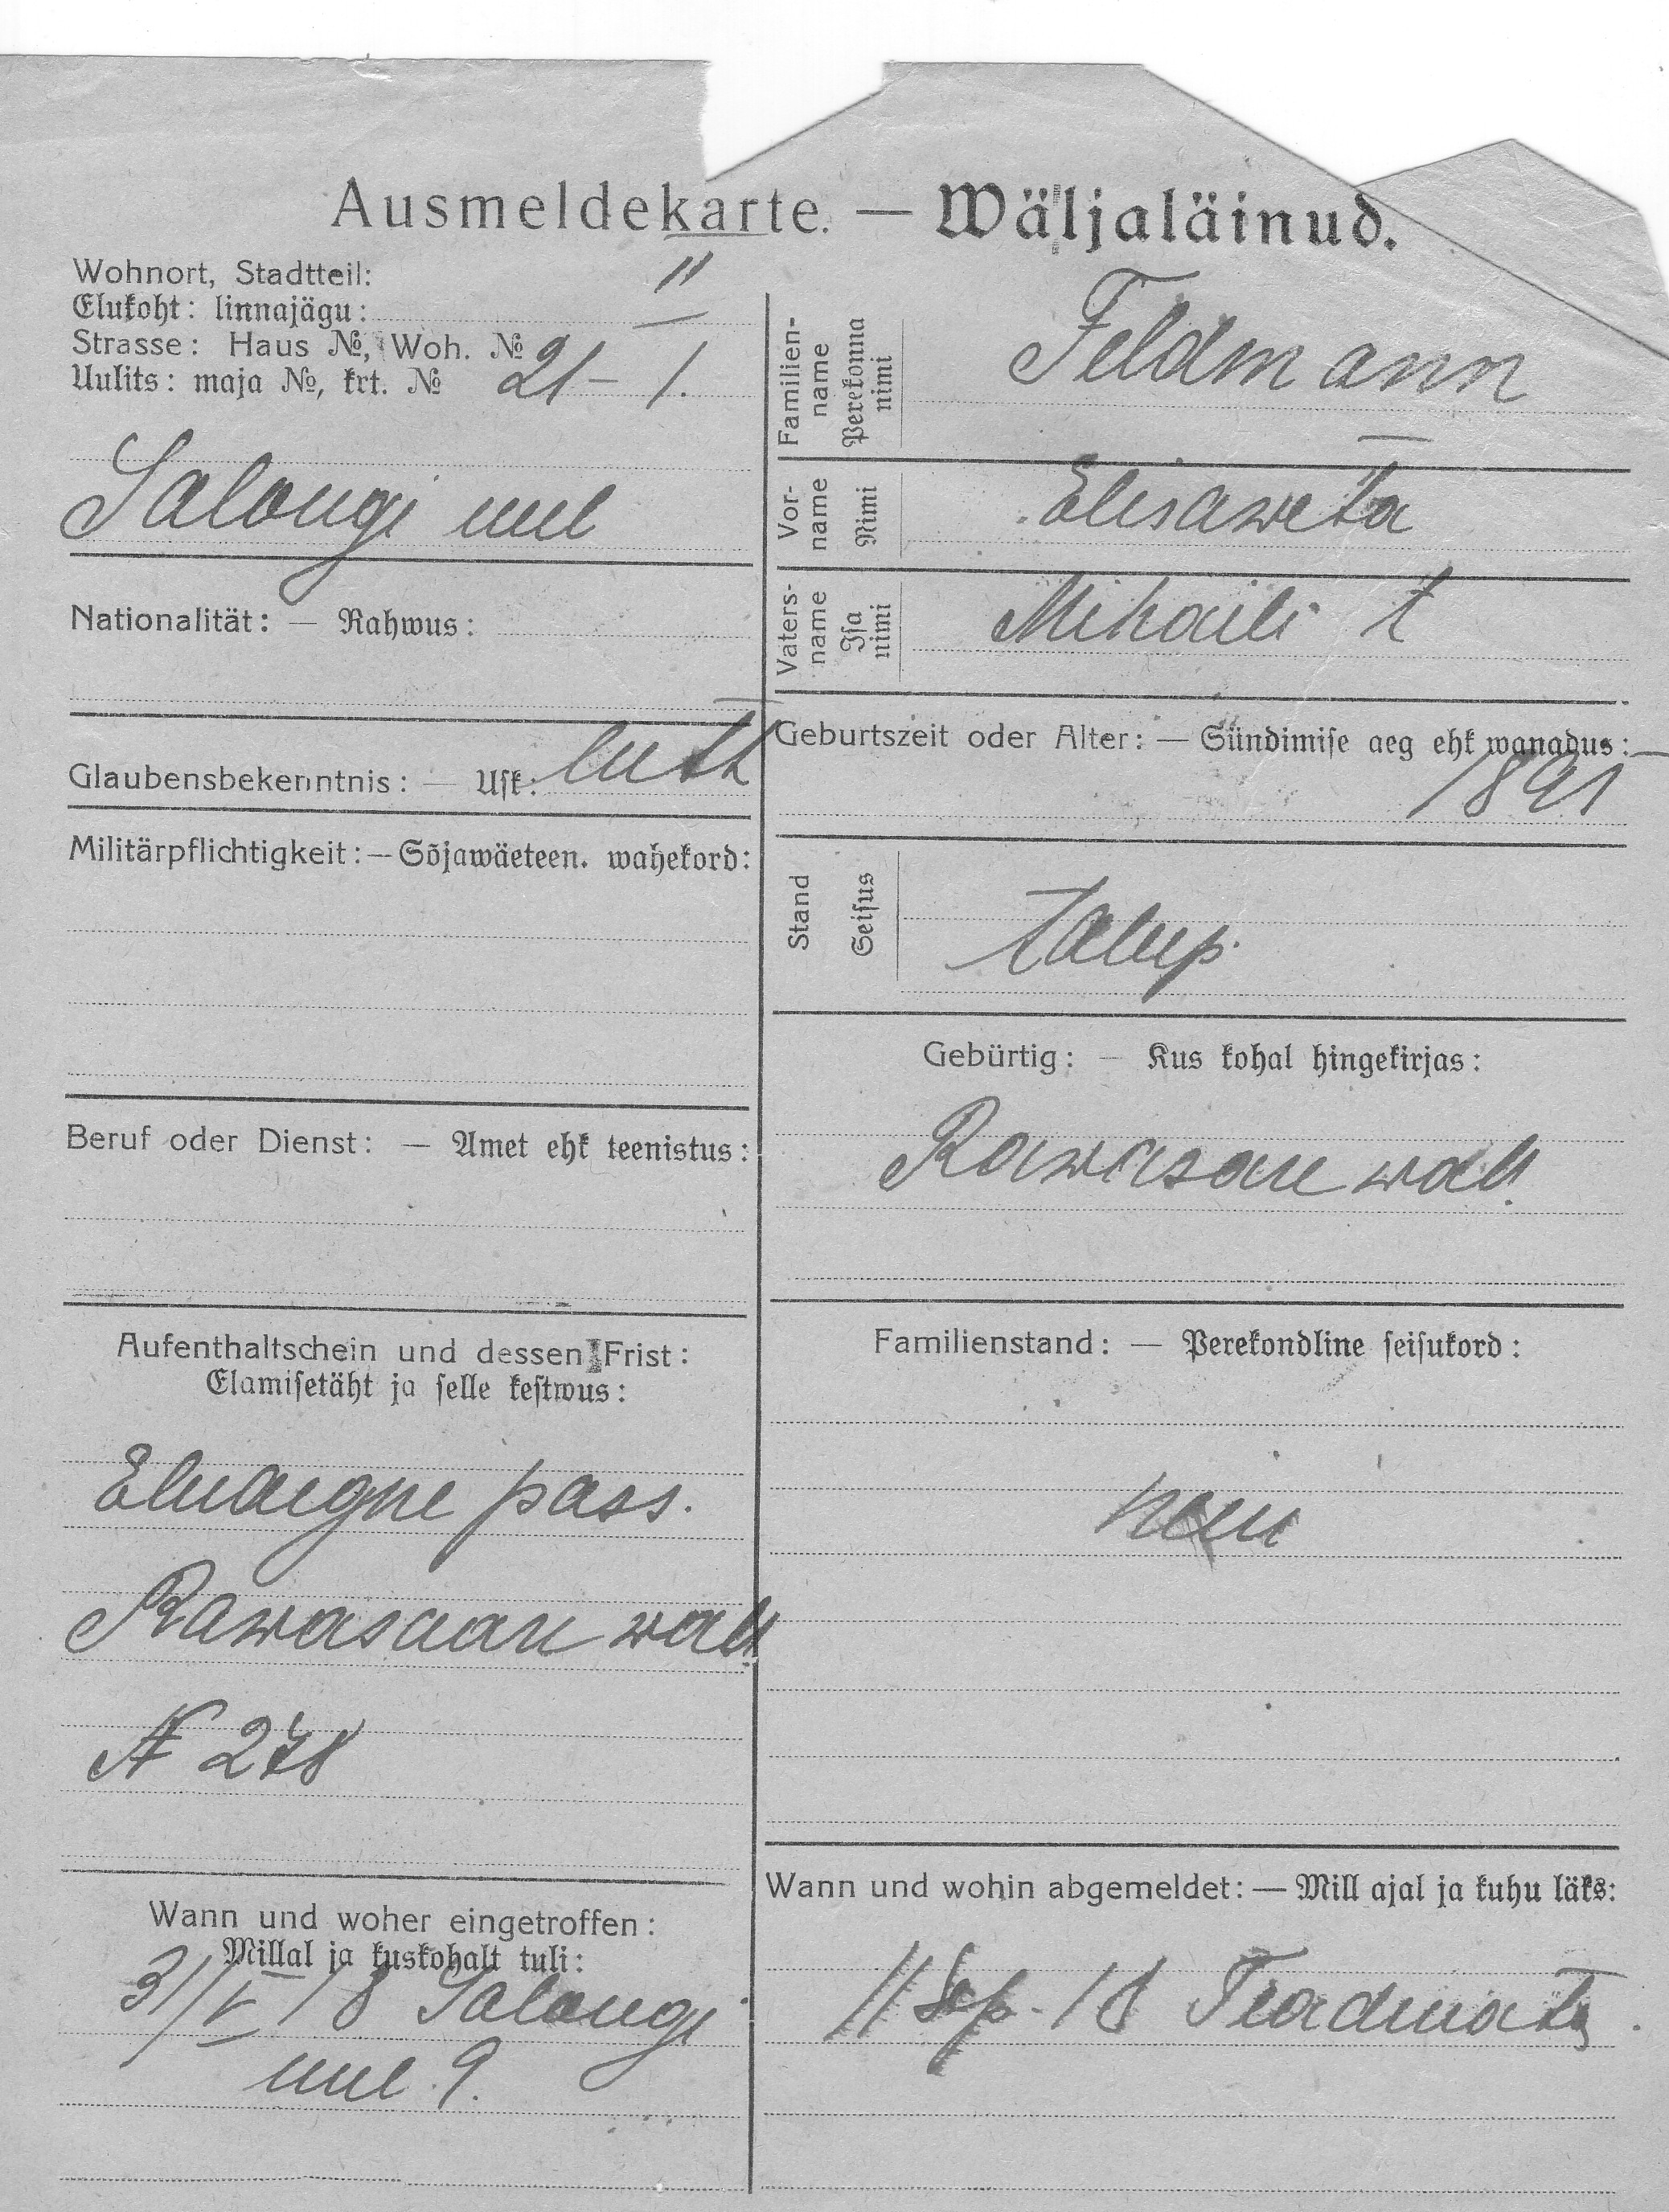 Ausmeldekarte. — Wäljaläinud.
Wohnort, Stadtteil:
Elukoht: linnajägu: II
Strasse: Haus №, Woh. №
Uulits: maja №, krt. № 21 – 1.
Salongi uul
Nationalität: — Rahwus:
Glaubensbekenntnis: — Usk: luth
Militärpflichtigkeit: — Sõjawäeteen. wahekord:
Beruf oder Dienst: — Amet ehk teenistus:
Aufenthaltschein und dessen Frist:
Elamisetäht ja selle kestwus:
Eluaegne pass.
Rawasaare wall.
N 278
Wann und woher eingetroffen:
Millal ja kuskohalt tuli:
31/V 18 Salongi
uul 9.
Familien-
name
Perekonna
nimi
Feldmann
Vor-
name
Nimi
Elisaweta
Vaters-
name
Isa
nimi
Mihaili t
Geburtszeit oder Alter: — Sündimise aeg ehk wanadus:
1891
Stand
Seisus
talup.
Gebürtig: — Kus kohal hingekirjas:
Rawasaare wall.
Familienstand: — Perekondline seisukord:
Wann und wohin abgemeldet: — Mill ajal ja kuhu läks:
11 Sep. 18